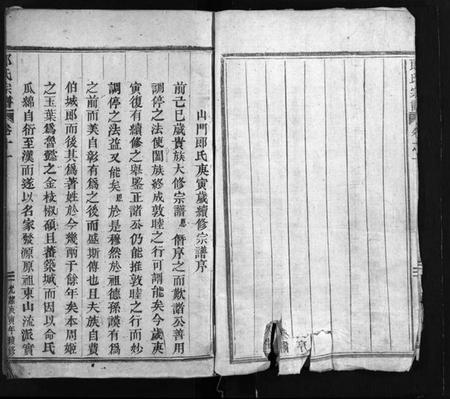 郎氏宗譜
山門郎氏庚寅歲續修宗譜序
前己巳歲貴族大修宗譜恩僭序之而歎諸公善用
調停之法使闔族終成敦睦之行可謂能矣今歲庚
寅復有續修之舉鑒正諸公仍能推敦睦之行而妙
調停之法益又能矣恩於是穆然於祖德孫謨有為
之前而美自彰有為之後而盛斯傳也且夫族自費
伯城郎而後其為著姓於今幾兩千餘年矣本周姬
之玉葉為魯懿之金枝椒碩且蕃築城而因以命氏
瓜綿自衍至漢而遂以名家發源原祖東山流派實
郎氏宗譜
卷十一
光緒庚寅年續修